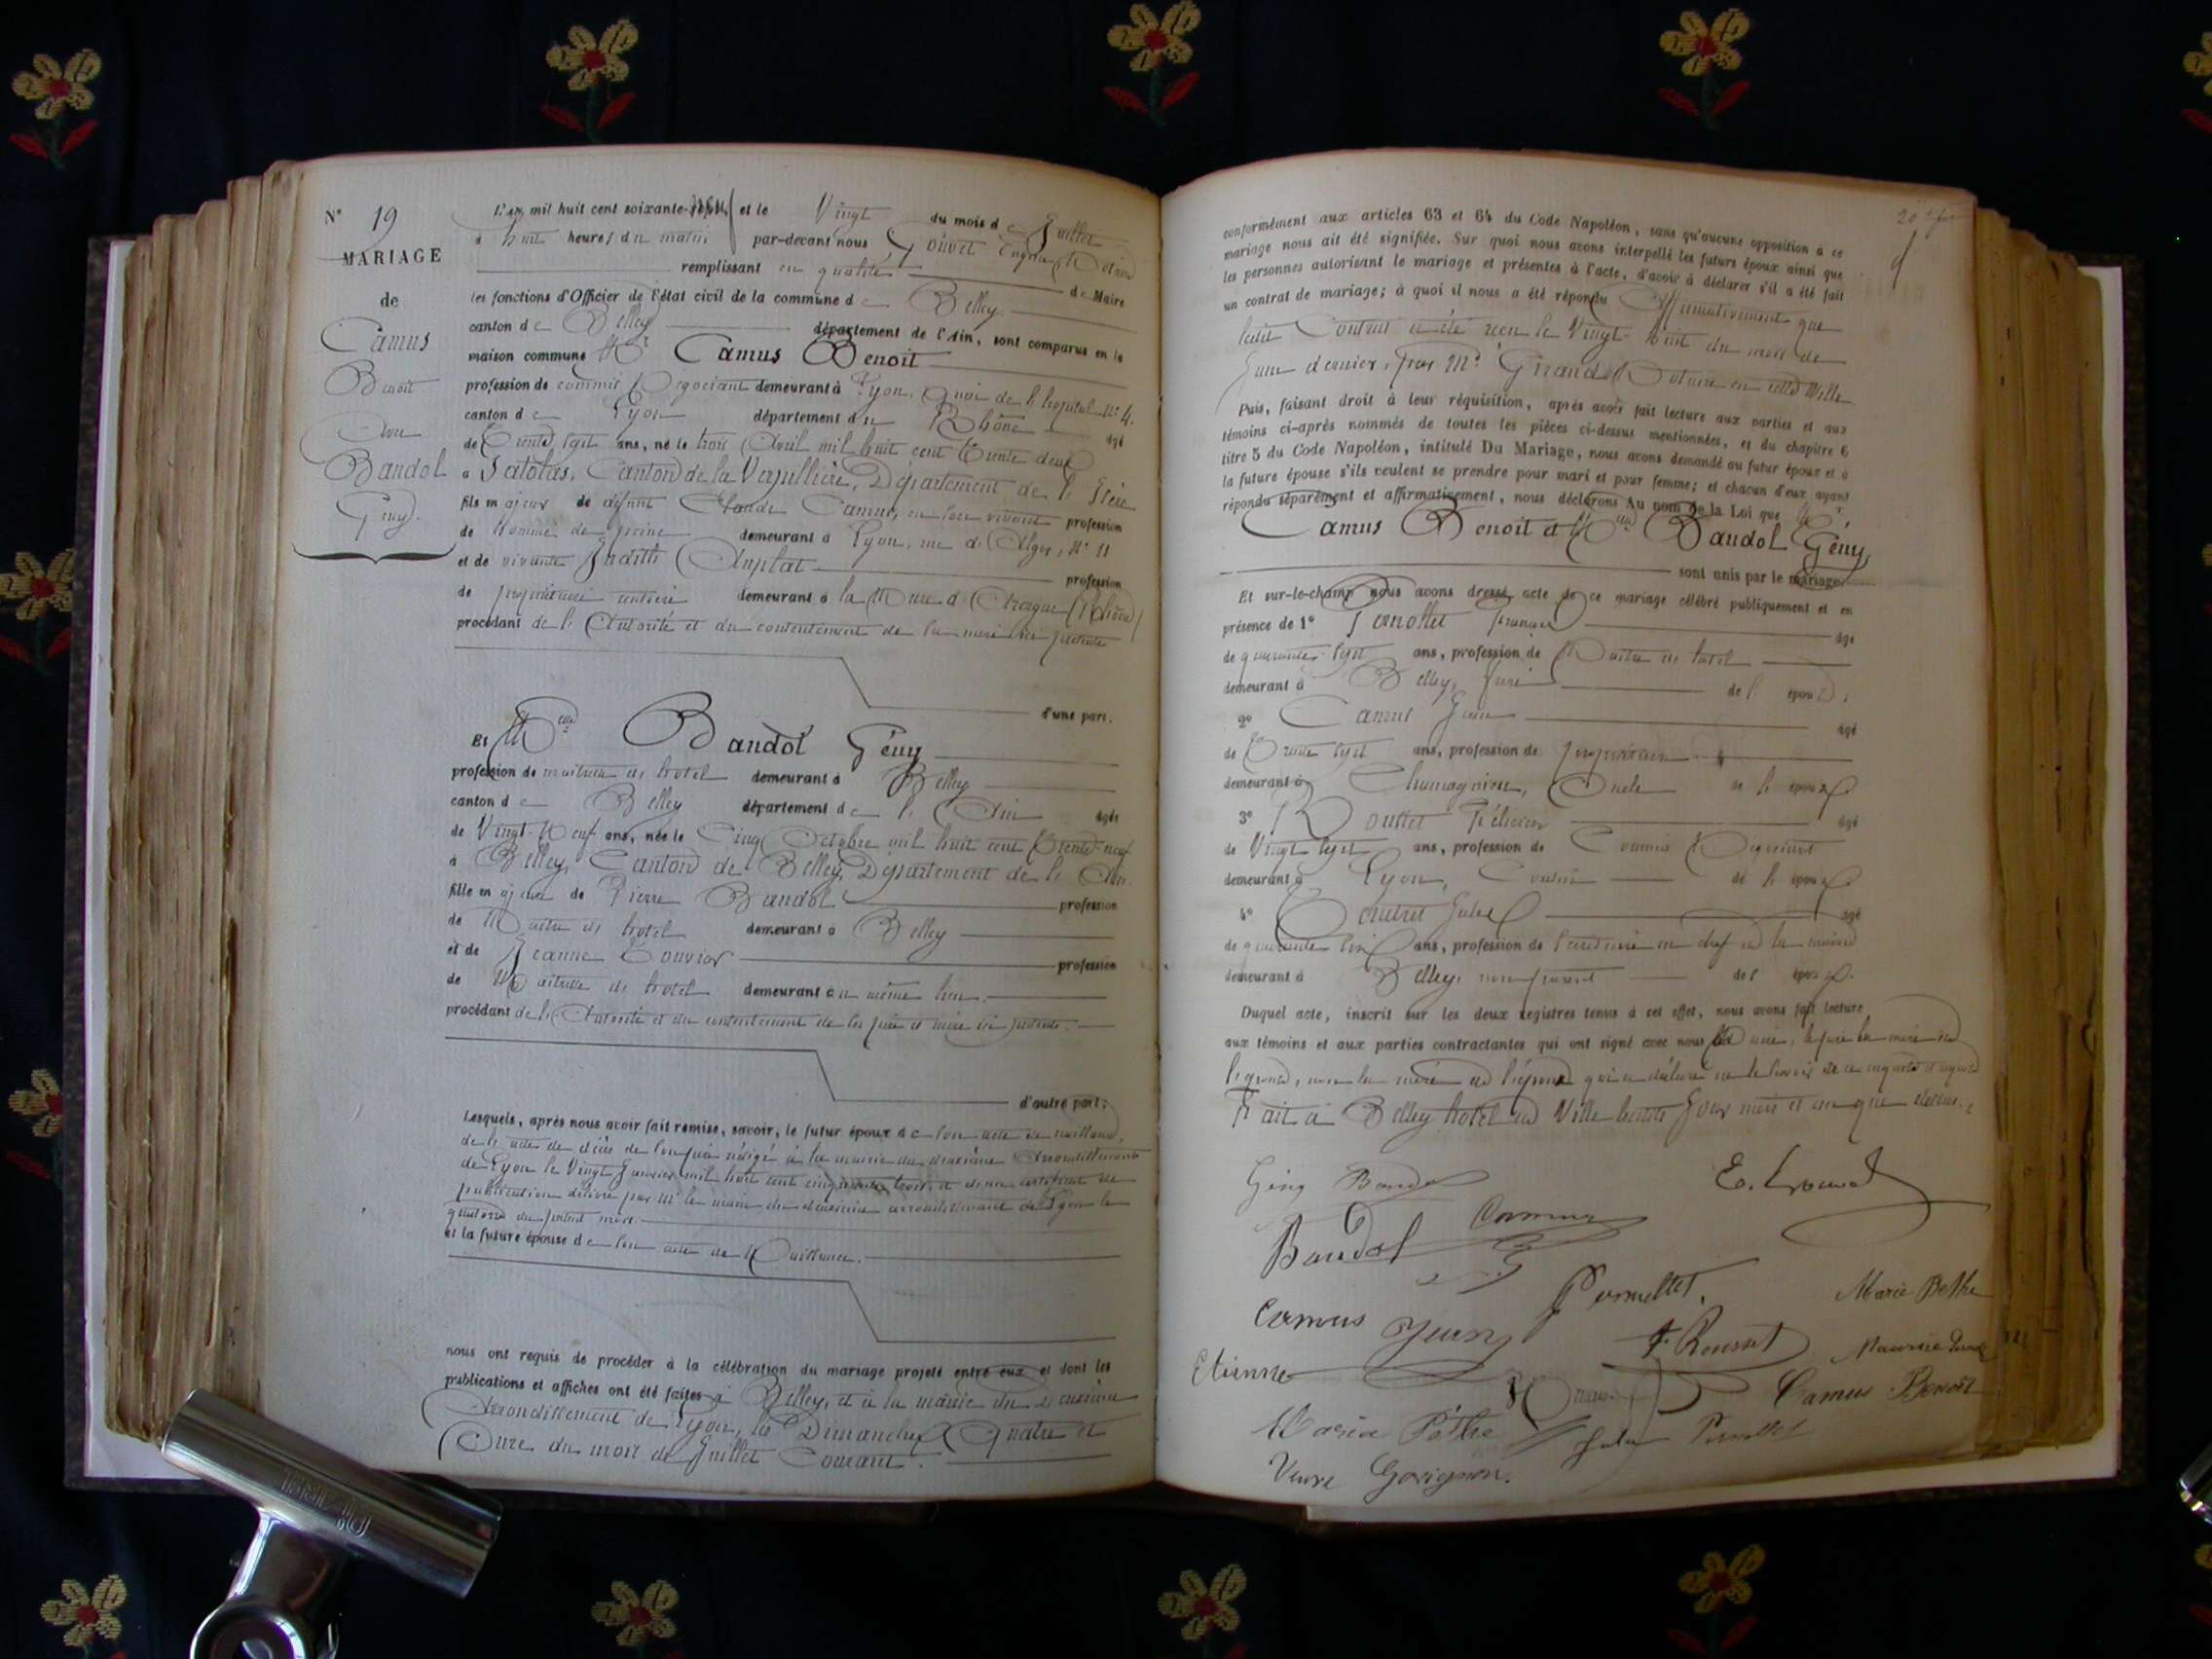 N° 19
MARIAGE
de
Camus
Benoit
Avec
Bandol
Gény.
L'an mil huit cent soixante- et le Vingt du mois de Juillet
à huit heures du matin par-devant nous
remplissant en qualité de Maire
les fonctions d'Officier de l'état civil de la commune de Belley
canton de Belley département de l'Ain, sont comparus en la
maison commune Mr Camus Benoit
profession de commis Négociant demeurant à Lyon, quai de l'hopital N° 4.
canton de Lyon département du Rhône âgé
de Trente sept ans, né le trois Avril mil huit cent Trente deux
à Satolas, Canton de la Verpillière, Département de l'Isère
fils majeur de défunt Claude Camus, en son vivant profession
de homme de peine demeurant à Lyon, rue d'Alger, N° 11
et de vivante Judith profession
de propriétaire rentière demeurant à la (Rhône)
procédant de l'Autorité et du consentement de sa mère ici présente
d'une part.
Et Melle Bandol Gény
profession de maitresse d'hotel demeurant à Belley
canton de Belley département de l'Ain âgée
de Vingt-Neuf ans, née le Cinq Octobre mil huit cent Trente-neuf
à Belley, Canton de Belley, Département de l'Ain.
fille majeure de Pierre Bandol profession
de Maitre d'hotel demeurant à Belley
et de Jeanne Bouvier profession
de Maitresse d'hotel demeurant au même lieu.
procédant de l'Autorité et du consentement de ses père et mère ici présents.
d'autre part:
Lesquels, après nous avoir fait remise, savoir, le futur époux de son acte de naissance,
de l'acte de décès de son père rédigé à la mairie du deuxième Arrondissement
de Lyon le Vingt Janvier mil huit cent cinquante trois, et d'un certificat de
publication délivré par Mr le maire du deuxième arrondissement de Lyon le
quatorze du présent mois.
et la future épouse de son acte de Naissance.
nous ont requis de procéder à la célébration du mariage projeté entre eux et dont les
publications et affiches ont été faites à Belley, et à la mairie du Deuxième
Arrondissement de Lyon, les Dimanches Quatre et
Onze du mois de Juillet Courant.
conformément aux articles 63 et 64 du Code Napoléon, sans qu'aucune opposition à ce
mariage nous ait été signifiée. Sur quoi nous avons interpellé les futurs époux ainsi que
les personnes autorisant le mariage et présentes à l'acte, d'avoir à déclarer s'il a été fait
un contrat de mariage; à quoi il nous a été répondu Affirmativement que
ledit Contrat a été reçu le Vingt-huit du mois de
Juin dernier, par Me Notaire en cette Ville.
Puis, faisant droit à leur réquisition, après avoir fait lecture aux parties et aux
témoins ci-après nommés de toutes les pièces ci-dessus mentionnées, et du chapitre 6
titre 5 du Code Napoléon, intitulé Du Mariage, nous avons demandé au futur époux et à
la future épouse s'ils veulent se prendre pour mari et pour femme; et chacun d'eux ayant
répondu séparément et affirmativement, nous déclarons Au nom de la Loi que Mr.
Camus Benoit et Melle Bandol Gény,
sont unis par le mariage
Et sur-le-champ nous avons dressé acte de ce mariage célébré publiquement et en
présence de 1° âgé
de quarante-sept ans, profession de Maitre d'hotel
demeurant à Belley, de l'épouse.
2° Camus Jean âgé
de Trente sept ans, profession de propriétaire
demeurant à Chamagnieu, Oncle de l'époux
3° Rousset Félicien âgé
de Vingt sept ans, profession de Commis Négociant
demeurant à Lyon, Cousin de l'époux
4° Jules âgé
de quarante ans, profession de
demeurant à Belley, non parent de l'époux.
Duquel acte, inscrit sur les deux registres tenus à cet effet, nous avons fait lecture
aux témoins et aux parties contractantes qui ont signé avec nous
Fait à Belley hotel de Ville lesdits Jour mois et an que dessus.
Gény Bandol
Bandol Camus
Camus Jean
Etienne
F. Rousset
Marie Bethe
Camus Benoit
Maria Péthe
Veuve Gavignon.